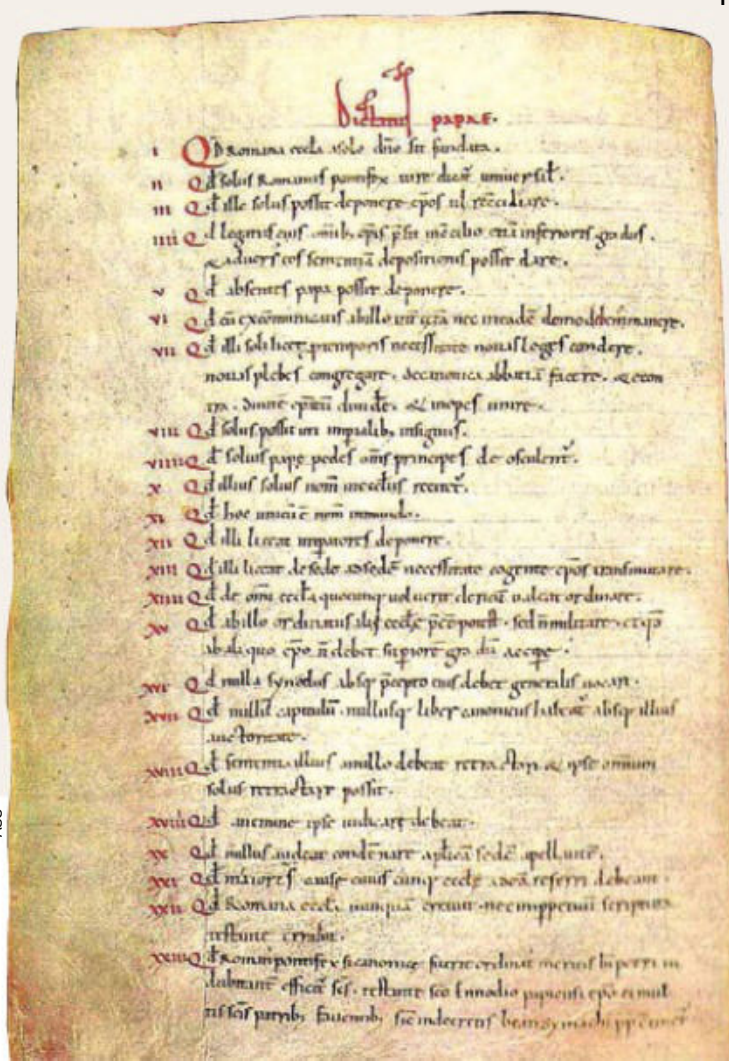 Dictatus papae.
i Qd Romana eccla a solo dno sit fundata.
ii Qd solus Romanus pontifex iure dicat universal.
iii Qd ille solus possit deponere epos ul reconciliare.
iiii Qd legatus eius omib; epis psit in concilio etiā inferioris gradus.
& adversus eos sententiā depositionis possit dare.
v Qd absentes papa possit deponere.
vi Qd cū excōmunicatis ab illo int cetera nec in eadē domo debem manere.
vii Qd illi soli licet p temporis necessitate novas leges condere.
novas plebes congregare. de canonica abbatiā facere. & econ
tra. divite epatū dividere. & inopes unire.
viii Qd solus possit uti imperialib; insigniis.
viiii Qd solius pape pedes oms principes deosculent.
x Qd illius solius nom in ecclis recitet.
xi Qd hoc unicū ē nom in mundo.
xii Qd illi liceat imperatores deponere.
xiii Qd illi liceat de sede ad sedē necessitate cogente epos transmutare.
xiiii Qd de omi eccla quocunq; voluerit clericū valeat ordinare.
xv Qd ab illo ordinatus alii eccle pesse potest. sed n militare. et qd
ab aliquo epo n debet superiorē gradū accipe.
xvi Qd nulla synodus absq; pcepto eius debet generalis vocari.
xvii Qd nullū capitulū. nullusq; liber canonicus habeat absq; illius
auctoritate.
xviii Qd sententia illius a nullo debeat retractari & ipse omnium
solus retractare possit.
xviiii Qd a nemine ipse iudicari debeat.
xx Qd nullus audeat condēnare aplicā sedē apellantē.
xxi Qd maiores cause cuiuscunq; eccle ad eā referri debeant.
xxii Qd Romana eccla nunquā erravit. nec imppetuū scriptura
testante errabit.
xxiii Qd Romanus pontifex si canonice fuerit ordinatus meritis b petri in
dubitanter efficit scs. testante sco Ennodio papiensi epo ei mul
tis scis patrib; faventib; sic in decretis beati symachi pp continet